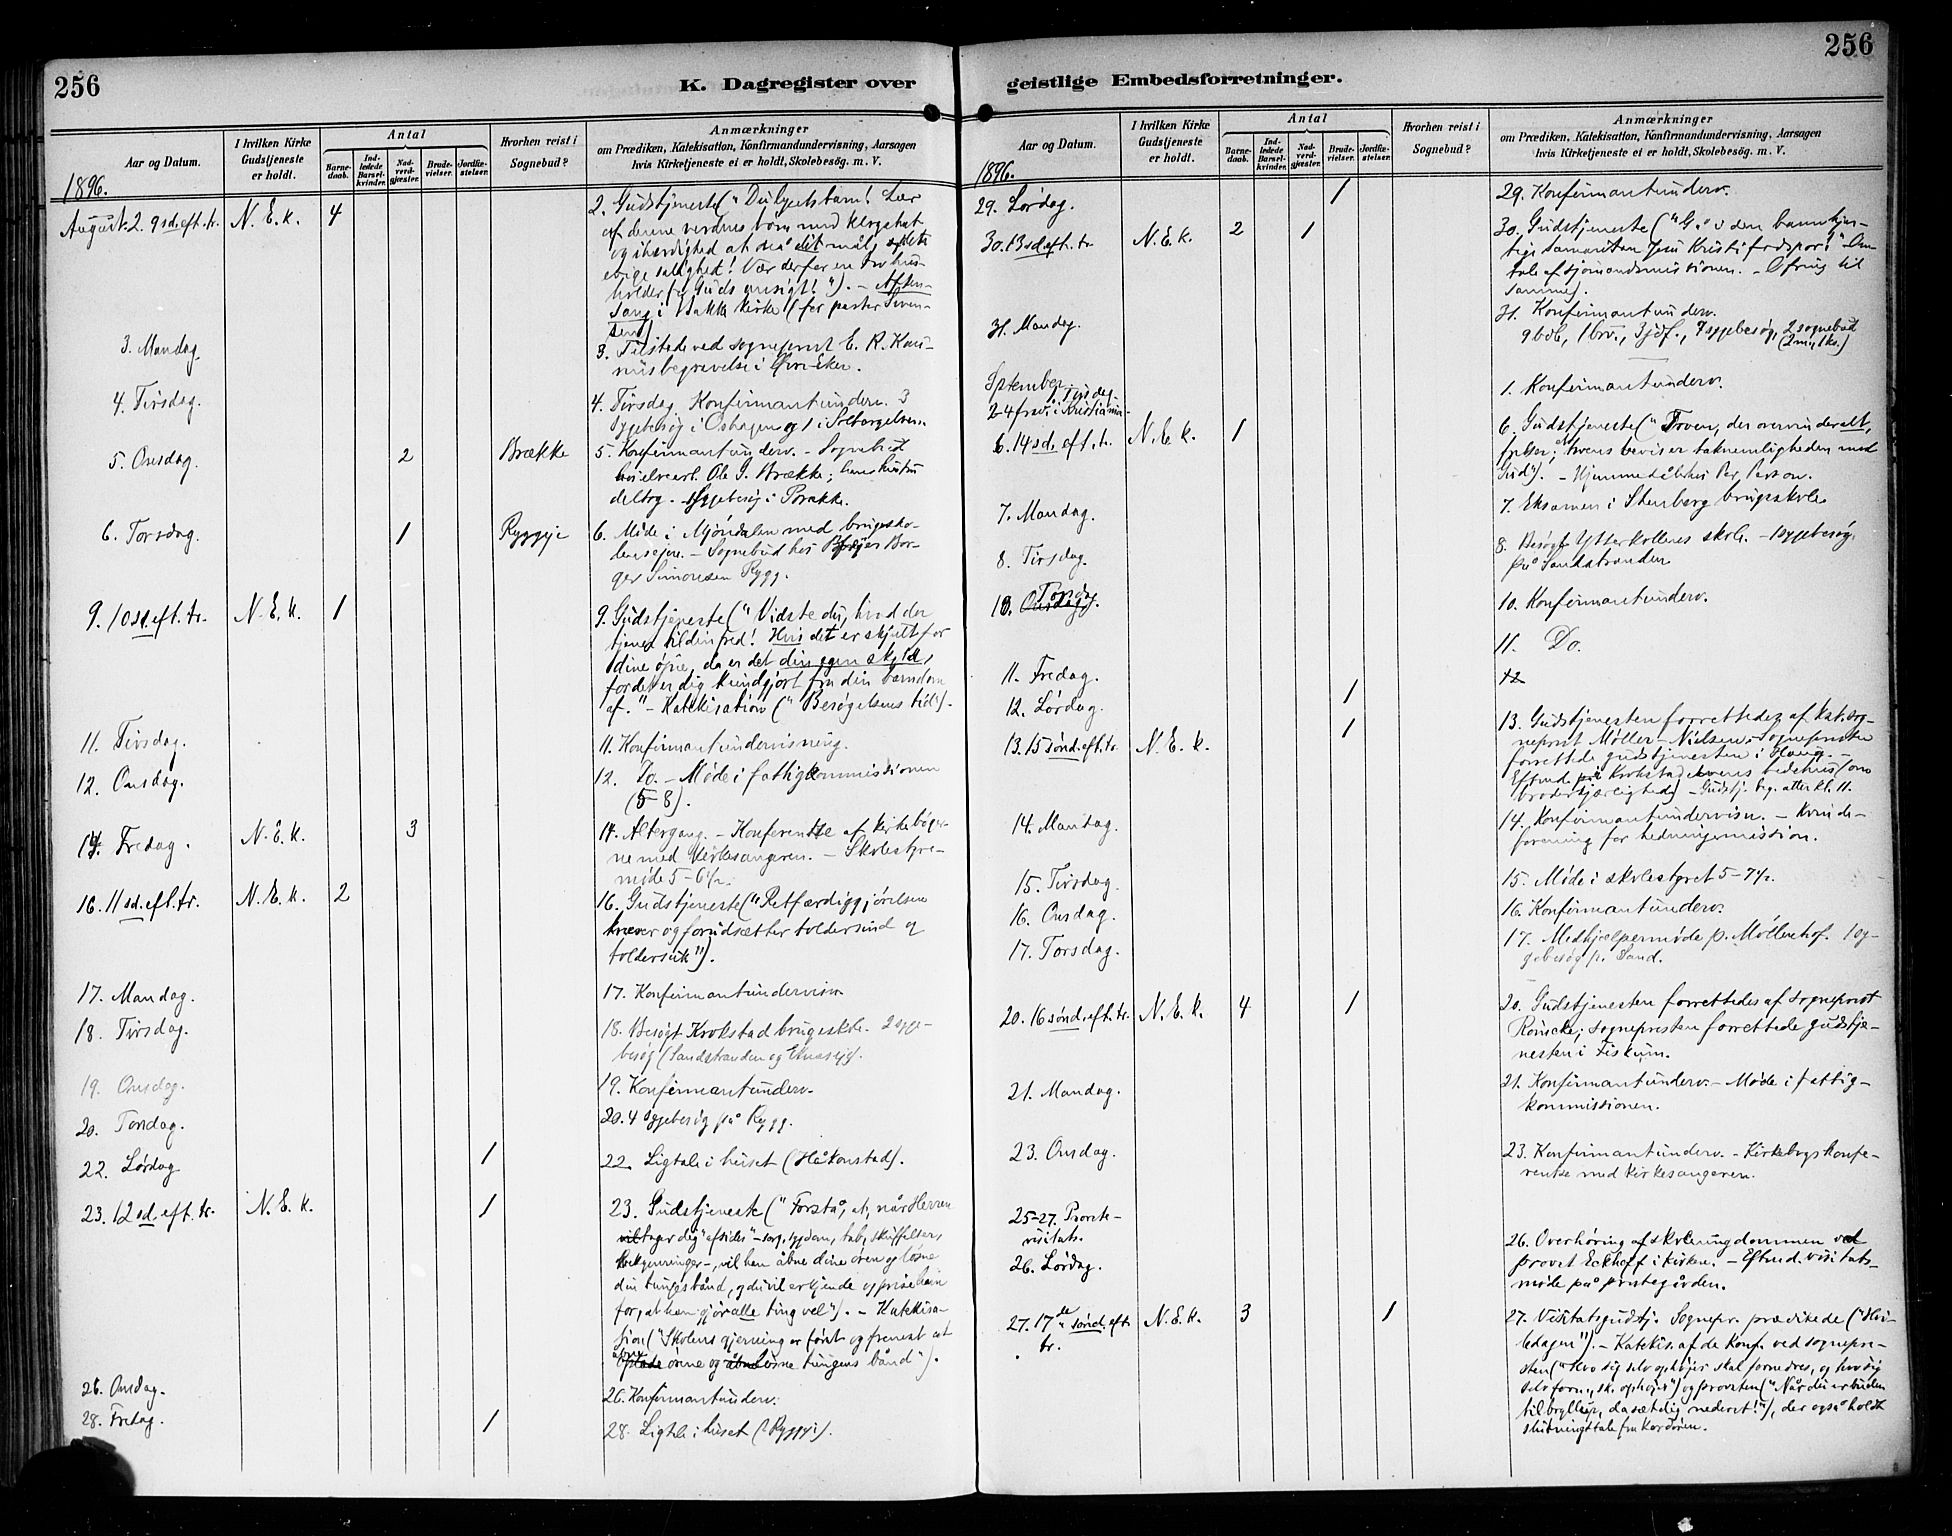 256
K. Dagregister over
Aar og Datum.
I hvilken Kirke
Gudstjeneste
er holdt.
Antal
Barne-
daab.
Ind-
ledede
Barsel-
kvinder.
Nad-
verd-
gjæster.
Brude-
vielser.
Jordfæ-
stelser.
Hvorhen reist i
Sognebud?
Anmærkninger
om Prædiken, Katekisation, Konfirmandundervisning, Aarsagen
hvis Kirketjeneste ei er holdt, Skolebesög. m. V.
1896.
August. 2. 9 sd. eft. tr. N. E. k. 4
2. Gudstjeneste (" Du lysets barn! Lær
af denne verdens børn med klogskab
og ihærdighed at nå dit mål,
evige salighed! Vær derfor en tro hus-
holder for Guds ansigt!"). - Aften-
sang i Bakke kirke (for pastor Sven-
sen)
3. Mandag.
3. Tilstede ved sogneprest E. R.
begravelse i Øvre Eker.
4. Tirsdag.
4. Tirsdag. Konfirmantunderv. 3
sygebesøg i og 1 i
5. Onsdag. 2 Brække
5. Konfirmantunderv. - Sognebud
Ole G. Brække; hans hustru
deltog. - Sygebesøg i
6. Torsdag. 1 Ryggje
6. Møde i Mjøndalen med brugssko-
- Sognebud hos Bor-
ger Simonsen Rygg.
9. 10 sd. eft. tr. N. E. k. 1
9. Gudstjeneste (" Vidste du, hvad der
tjener til din fred! Hvis det er skjult for
dine øine, da er det din egen skyld,
for det er dig kundgjort fra din barndom
af." - Katekisation (" Besøgelsens tid").
11. Tirsdag.
11. Konfirmantundervisning.
12. Onsdag.
12. Do. - Møde i fattigkommissionen
(5-8).
14. Fredag. N. E. k. 3
14. Altergang. - Konferentse af kirkebøger-
ne med kirkesangeren. - Skolestyre-
møde 5-6½.
16. 11 sd. eft. tr. N. E. k. 2
16. Gudstjeneste (" Retfærdiggjørelsen
kræver og forudsætter toldersind og
toldersuk").
17. Mandag.
17. Konfirmantundervisn.
18. Tirsdag.
18. Besøgt Krokstad brugsskole. 2 syge-
besøg (Sandstranden og
19. Onsdag.
19. Konfirmantunderv.
20. Torsdag.
20. 4 sygebesøg på Rygg.
22. Lørdag 1
22. Ligtale i huset (Håkonstad).
23. 12 sd. eft. tr. N. E. k. 1
23. Gudstjeneste (" Forstå, at, når Herren
tager dig "afsides" - sorg, sygdom, tab, skuffelser,
- , vil han åbne dine øren og løsne
din tunges bånd, og du vil erkjende og prise ham
for, at han "gjør alle ting vel"). - Katekisa-
sion (" Skolens gjerning er først og fremst at
åbne ørene og løsne tungens bånd").
26. Onsdag.
26. Konfirmantunderv.
28. Fredag. 1
28. Ligtale i huset (Ryggji).
256
geistlige Embedsforretninger.
Aar og Datum.
I hvilken Kirke
Gudstjeneste
er holdt.
Antal
Barne-
daab.
Ind-
ledede
Barsel-
kvinder.
Nad-
verd-
gjæster.
Brude-
vielser.
Jordfæ-
stelser.
Hvorhen reist i
Sognebud?
Anmærkninger
om Prædiken, Katekisation, Konfirmandundervisning, Aarsagen
hvis Kirketjeneste ei er holdt, Skolebesög. m. V.
1896.
29. Lørdag. 1
29. Konfirmantunderv.
30. 13 sd. eft. tr. N. E. k. 2 1
30. Gudstjeneste (" Gå i den barmhjer-
tige samaritan Jesu Kristi fodspor!" Om-
tale af sjømandsmissionen. - Ofring til
samme).
31. Mandag.
31. Konfirmantunderv.
9 bdb., 1 brv., 3 jdf., 7 sygebesøg, 2 sognebud
(2 m., 1 kv.)
September
1. Tirsdag.
1. Konfirmantunderv.
2-4 frav. i Kristiania
6. 14 sd. eft. tr. N. E. k. 1
6. Gudstjeneste (" Troen, der overvinder alt,
frelser; troens bevis er taknemligheden mod
Gud"). - Hjemmedåb hos Per Person.
7. Mandag.
7. Eksamen i Stenberg brugsskole
8. Tirsdag.
8. Besøgt Ytterkollenes skole. - Sygebesøg
på Sandstranden
10. Torsdag.
10. Konfirmantunderv.
11. Fredag.
11. Do.
12. Lørdag. 1
12
13. 15 sønd. eft. tr. N. E. k. 1
13. Gudstjenesten forrettedes af kat. og
Møller-Nielsen; Sognepresten
forrettede gudstjenesten i Haug. -
Eftmd. på Krokstadelvens bedehus (om
broderkjærlighed) - Gudstj. beg. atter kl. 11.
14. Mandag.
14. Konfirmantundervisn. - Kvinde-
forening for hedningemission.
15. Tirsdag.
15. Møde i skolestyret 5-7½.
16. Onsdag.
16. Konfirmantunderv.
17. Torsdag.
17. Medhjælpermøde p. Møllenhof. 1 sy-
gebesøg p. Sand.
20. 16 sønd. eft. tr. N. E. k. 4 1
20. Gudstjenesten forrettedes af sogneprest
Roincke; sognepresten forrettede gudstje-
nesten i Fiskum.
21. Mandag.
21. Konfirmantunderv. - Møde i fattig-
kommissionen.
23. Onsdag.
23. Konfirmantunderv. - Kirkebogskonfe-
rentse med kirkesangeren.
25-27. Provste-
visitats.
26. Lørdag.
26. Overhøring af skoleungdommen ved
provst Eckhoff i kirken. - Eftmd. visitats-
møde på prestegården.
27. 17de sønd. eft. tr. N. E. k. 3 1
27. Visitatsgudstj. Sognepr. prædikede (" Hvi-
ledagen"). - Katekis. af de konf. ved sognepre-
sten (" Hvo sig selv ophøjer skal fornedres, og hvo sig
selv forn., sk. ophøjes") og provsten (" Når du er buden
til bryllup, da sæt dig nederst!"), der også holdt
slutningstale fra kordøren.